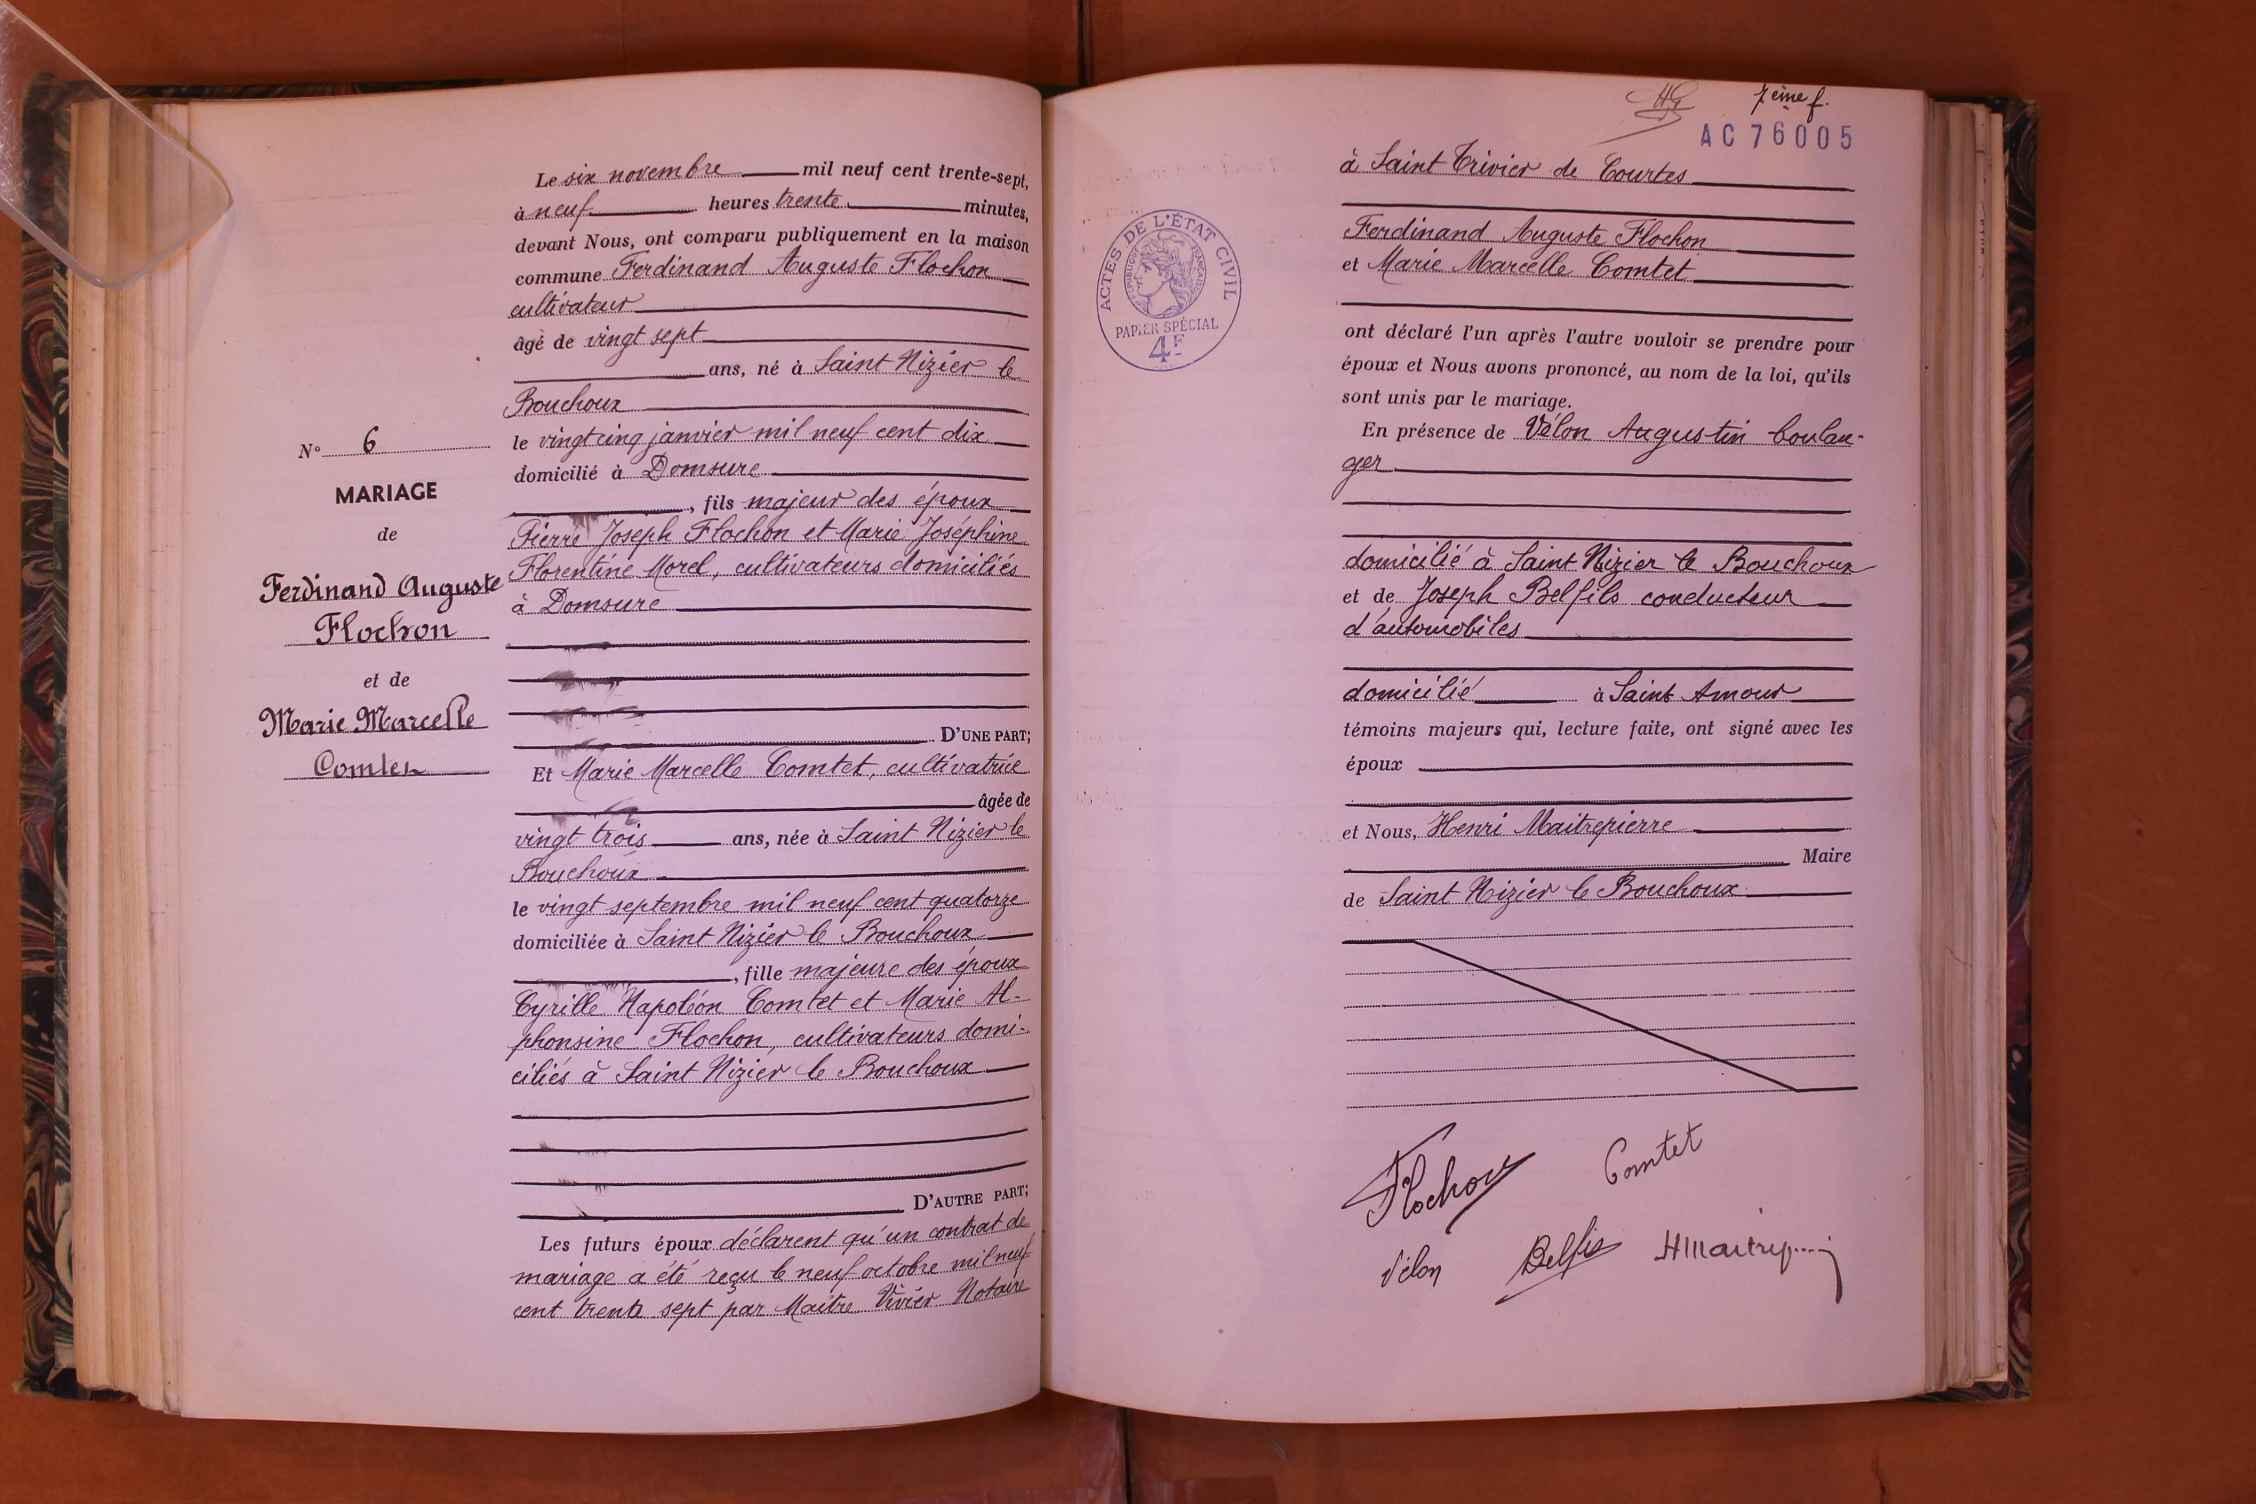 N° 6
MARIAGE
de
Ferdinand Auguste
Flochon
et de
Marie Marcelle
Comtet
Le six novembre mil neuf cent trente-sept,
à neuf heures trente minutes,
devant Nous, ont comparu publiquement en la maison
commune Ferdinand Auguste Flochon
cultivateur
âgé de vingt sept
ans, né à Saint Nizier le
Bouchoux
le vingt cinq janvier mil neuf cent dix
domicilié à Domsure
, fils majeur des époux
Pierre Joseph Flochon et Marie Joséphine
Florentine Morel, cultivateurs domiciliés
à Domsure
D'UNE PART;
Et Marie Marcelle Comtet, cultivatrice
âgée de
vingt trois ans, née à Saint Nizier le
Bouchoux
le vingt septembre mil neuf cent quatorze
domiciliée à Saint Nizier le Bouchoux
, fille majeure des époux
Cyrille Napoléon Comtet et Marie Al-
phonsine Flochon, cultivateurs domi-
ciliés à Saint Nizier le Bouchoux
D'AUTRE PART;
Les futurs époux déclarent qu'un contrat de
mariage a été reçu le neuf octobre mil neuf
cent trente sept par Maitre Vivier Notaire
7ème f.
AC 76005
ACTES DE L'ÉTAT CIVIL
RÉPUBLIQUE FRANÇAISE
PAPIER SPÉCIAL
4F
à Saint Trivier de Courtes
Ferdinand Auguste Flochon
et Marie Marcelle Comtet
ont déclaré l'un après l'autre vouloir se prendre pour
époux et Nous avons prononcé, au nom de la loi, qu'ils
sont unis par le mariage.
En présence de Vélon Augustin boulan-
ger
domicilié à Saint Nizier le Bouchoux
et de Joseph Belfils conducteur
d'automobiles
domicilié à Saint Amour
témoins majeurs qui, lecture faite, ont signé avec les
époux
et Nous, Henri Maitrepierre
Maire
de Saint Nizier le Bouchoux
Flochon
Comtet
Vélon
Belfis